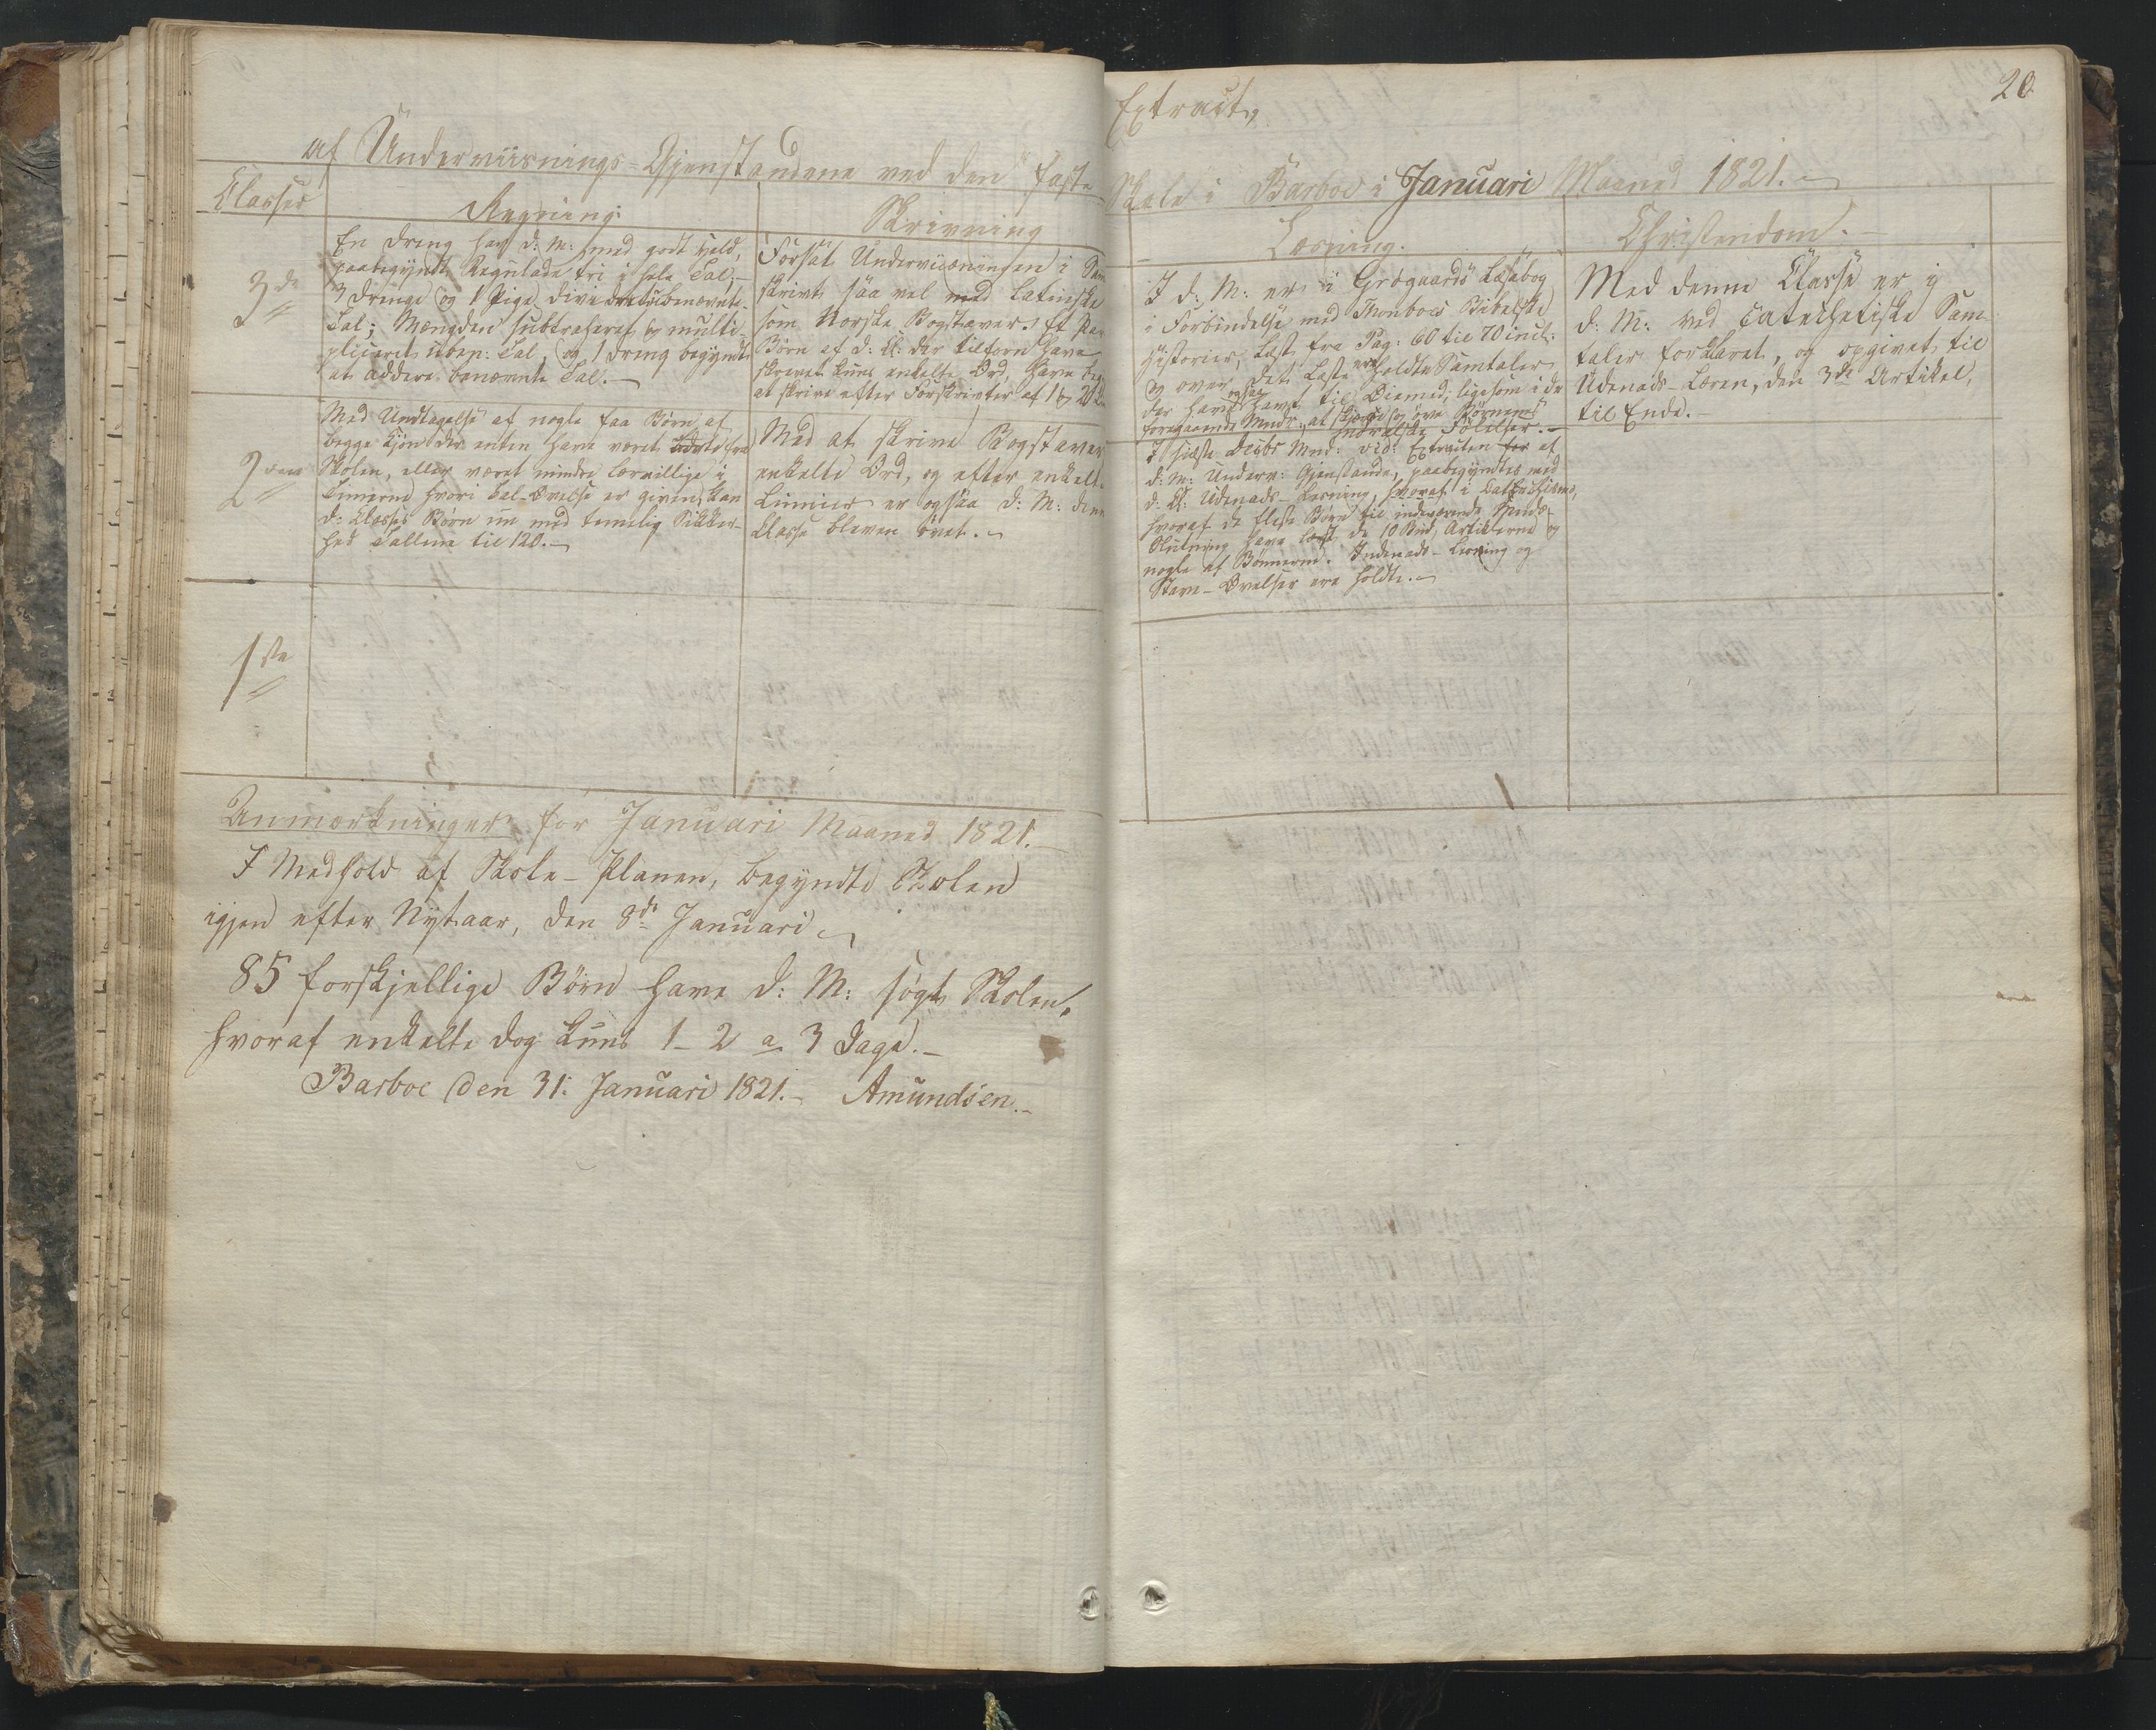 Extract,
20
af Underviisnings-Gjenstandene ved den faste
Skole i Barboe i Januari Maaned 1821.
Classer
Regning.
Skrivning
Læsning.
Christendom.
3de
En Dreng har d: M: med godt Held,
paabegyndt Regulade tri i hele Tal;
3 Drenge og 1 Pige dividere ubenævnte
Tal; Mængden subtraheret og multi
pliceret uben: Tal, og 1 Dreng begyndt
at addere benævnte Tal.
Forsat Underviisningen i
skrivt saa vel med latinske
som Norske Bogstaver. Et Par
Børn af d: Cl: der tilforn have
skrevet kuns enkelte Ord, have
at skrive efter Forskrivter af 1 og 2
I d: M: er i Grøgaards Læsebog
i Forbindelse med Thonboes Bibelske
Historier, læst fra Pag: 60 til 70 incl:
og over det Læste ere holdte Samtaler
der have ogsaa havt til Øiemed, ligesom i de
foregaaende Mndr:, at og øve Børnenes
moralske Følelser.
Med denne Classe er i
d: M: ved Catechetiske Sam
taler forklaret, og opgivet til
Udenads-Læren, den 3de Artikel,
til Ende.
2den
Med Undtagelse af nogle faa Børn af
begge Kjøn der enten have været fra
Skolen, eller været mindre lærvillige i
Timerne hvori Tal-Øvelse er given, kan
d: Classes Børn nu med temmelig Sikker-
hed Tallene til 120.
Med at skrive Bogstaver
enkelte Ord, og efter enkelt
Linnier er ogsaa d: M: den
Classe bleven øvet.
I sidste Decbr Mnd: vid: Extracten for af
d: M: Underv: Gjenstande, paabegyndtes med
d: Cl: Udenads-Læsning, hvoraf i Catechismo,
hvoraf de fleste Børn til indeværende Mnds
Slutning have læst de 10 Bud, Artiklerne og
nogle af Bønnerne. Indenads-Læsning og
Stave-Øvelser ere holdte.
1ste
Anmærkninger for Januari Maaned 1821.
I Medhold af Skole-Planen, begyndte Skolen
igjen efter Nytaar, den 8de Januari.
85 forskjellige Børn have d: M: søgt Skolen,
hvoraf enkelte dog kuns 1-2 a 3 Dage.
Barboe den 31. Januari 1821. Amundsen.